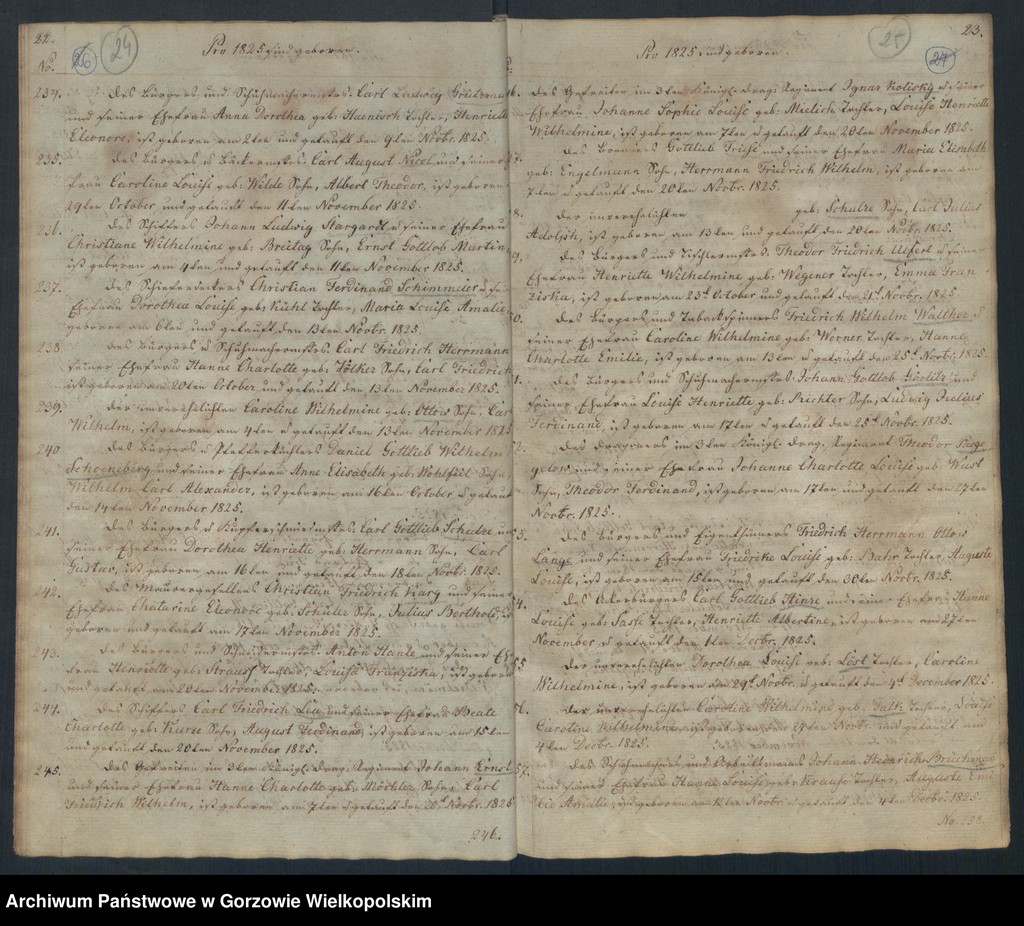 22.
26
24
Pro 1825 sind geboren.
No.
234. Des Bürgers und Schuhmachermstrs. Carl Ludwig
und seiner Ehefrau Anna Dorothea geb: Haenisch Tochter, Henriette
Eleonore, ist geboren am 2ten und getauft den 9ten Novbr. 1825.
235. Des Bürgers u Bäckermstrs. Carl August Nicol und seiner Ehe-
frau Caroline Louise geb: Wilde Sohn, Albert Theodor, ist geboren
29ten October und getauft den 11ten November 1825.
236. Des Schiffers Johann Ludwig Stargardt u seiner Ehefrau
Christiane Wilhelmine geb: Breitag Sohn, Ernst Gottlob Martin,
ist geboren am 4ten und getauft den 11ten November 1825.
237. Des Schieferdeckers Christian Ferdinand Schimmeler u seiner
Ehefrau Dorothea Louise geb: Kühl Tochter, Maria Louise Amalie,
geboren am 6ten und getauft den 13ten Novbr. 1825.
238. Des Bürgers u Schuhmachermstrs. Carl Friedrich Herrmann
seiner Ehefrau Hanne Charlotte geb: Tölker Sohn, Carl Friedrich
ist geboren am 20ten October und getauft den 13ten November 1825.
239. Der unverehelichten Caroline Wilhelmine geb: Otto Sohn, Carl
Wilhelm, ist geboren am 4ten u getauft den 13ten November 1825
240 Des Bürgers u Pfefferküchlers Daniel Gottlieb Wilhelm
Schoeneberg und seiner Ehefrau Anne Elisabeth geb: Wohlfeil Sohn
Wilhelm Carl Alexander, ist geboren am 16ten October u getauft
den 14ten November 1825.
241. Des Bürgers u Kupferschmiedmstrs. Carl Gottlieb Schulze und
seiner Ehefrau Dorothea Henriette geb: Herrmann Sohn, Carl
Gustav, ist geboren am 16ten und getauft den 18ten Novbr. 1825.
242. Des Maurergesellen Christian Friedrich Karg und seiner
Ehefrau Chatarine Eleonore geb: Schulze Sohn, Julius Berthold, ist
geboren und getauft am 17ten November 1825.
243. Des Bürgers und Schneidermstrs. Anton Hante und seiner Ehe-
frau Henriette geb: Strauss Tochter, Louise Franziska, ist geboren
und getauft am 20ten November 1825.
244. Des Schiffers Carl Friedrich Leu und seiner Ehefrau Beate
Charlotte geb: Kurze Sohn, August Ferdinand, ist geboren am 15ten
und getauft den 20ten November 1825.
245. Des Gefreiten im 3ten Königl. Drag. Regiment Johann Ernst
und seiner Ehefrau Hanne Charlotte geb: Sohn, Carl
Friedrich Wilhelm, ist geboren am 7ten u getauft den 20t Novbr. 1825
246.
23.
25
27
Pro 1825 sind geboren.
6. Des Gefreiten im 3ten Königl. Drag. Regiment Ignaz u seiner
Ehefrau Johanne Sophie Louise geb: Mielich Tochter, Louise Henriette
Wilhelmine, ist geboren am 7ten u getauft den 20ten November 1825.
7. Des Gottlieb Friese und seiner Ehefrau Maria Elisabeth
geb: Engelmann Sohn, Herrmann Friedrich Wilhelm, ist geboren am
7ten u getauft den 20ten Novbr. 1825.
8. Der unverehelichten geb: Schulze Sohn, Carl Julius
Adolph, ist geboren am 13ten und getauft den 20ten Novbr. 1825.
9. Des Bürgers und Tischlermstrs. Theodor Friedrich u seiner
Ehefrau Henriette Wilhelmine geb: Wegener Tochter, Emma Fran-
ziska, ist geboren am 23t October und getauft den 21t Novbr. 1825
0. Des Bürgers und Tabackspinners Friedrich Wilhelm Walther u
seiner Ehefrau Caroline Wilhelmine geb: Werner Tochter, Hanne
Charlotte Emilie, ist geboren am 13ten u getauft den 25t Novbr. 1825.
1. Des Bürgers und Schuhmachermstrs. Johann Gottlob Görlitz und
seiner Ehefrau Louise Henriette geb: Richter Sohn, Ludwig Julius
Ferdinand, ist geboren am 17ten u getauft den 25t Novbr. 1825.
2. Des Dragoners im 3ten Königl. Drag. Regiment Theodor
und seiner Ehefrau Johanne Charlotte Louise geb: Wust
Sohn, Theodor Ferdinand, ist geboren am 17ten und getauft den 27ten
Novbr. 1825.
3. Des Bürgers und Eigenthümers Friedrich Herrmann Otto
Lange und seiner Ehefrau Friedrike Louise geb: Bahr Tochter, Auguste
Louise, ist geboren am 15ten und getauft den 30ten Novbr. 1825.
4. Des Ackerbürgers Carl Gottlieb Hinze und seiner Ehefrau Hanne
Louise geb: Sasse Tochter, Henriette Albertine, ist geboren am 27ten
November u getauft den 1ten Decbr. 1825.
55 Der unverehelichten Dorothea Louise geb: Löst Tochter, Caroline
Wilhelmine, ist geboren den 29t Novbr. u getauft den 4t December 1825.
56. Der unverehelichten Caroline Wilhelmine geb: Falk Tochter, Louise
Caroline Wilhelmine, ist geboren den Novbr. und getauft am
4ten Decbr. 1825.
57. Des Schuhmachers und Johann Heinrich
und seiner Ehefrau Hanne Louise geb: Krause Tochter, Auguste Emi-
lie Amalie, ist geboren am 12ten Novbr. u getauft den 4ten Decbr. 1825.
No. 258.
Archiwum Państwowe w Gorzowie Wielkopolskim